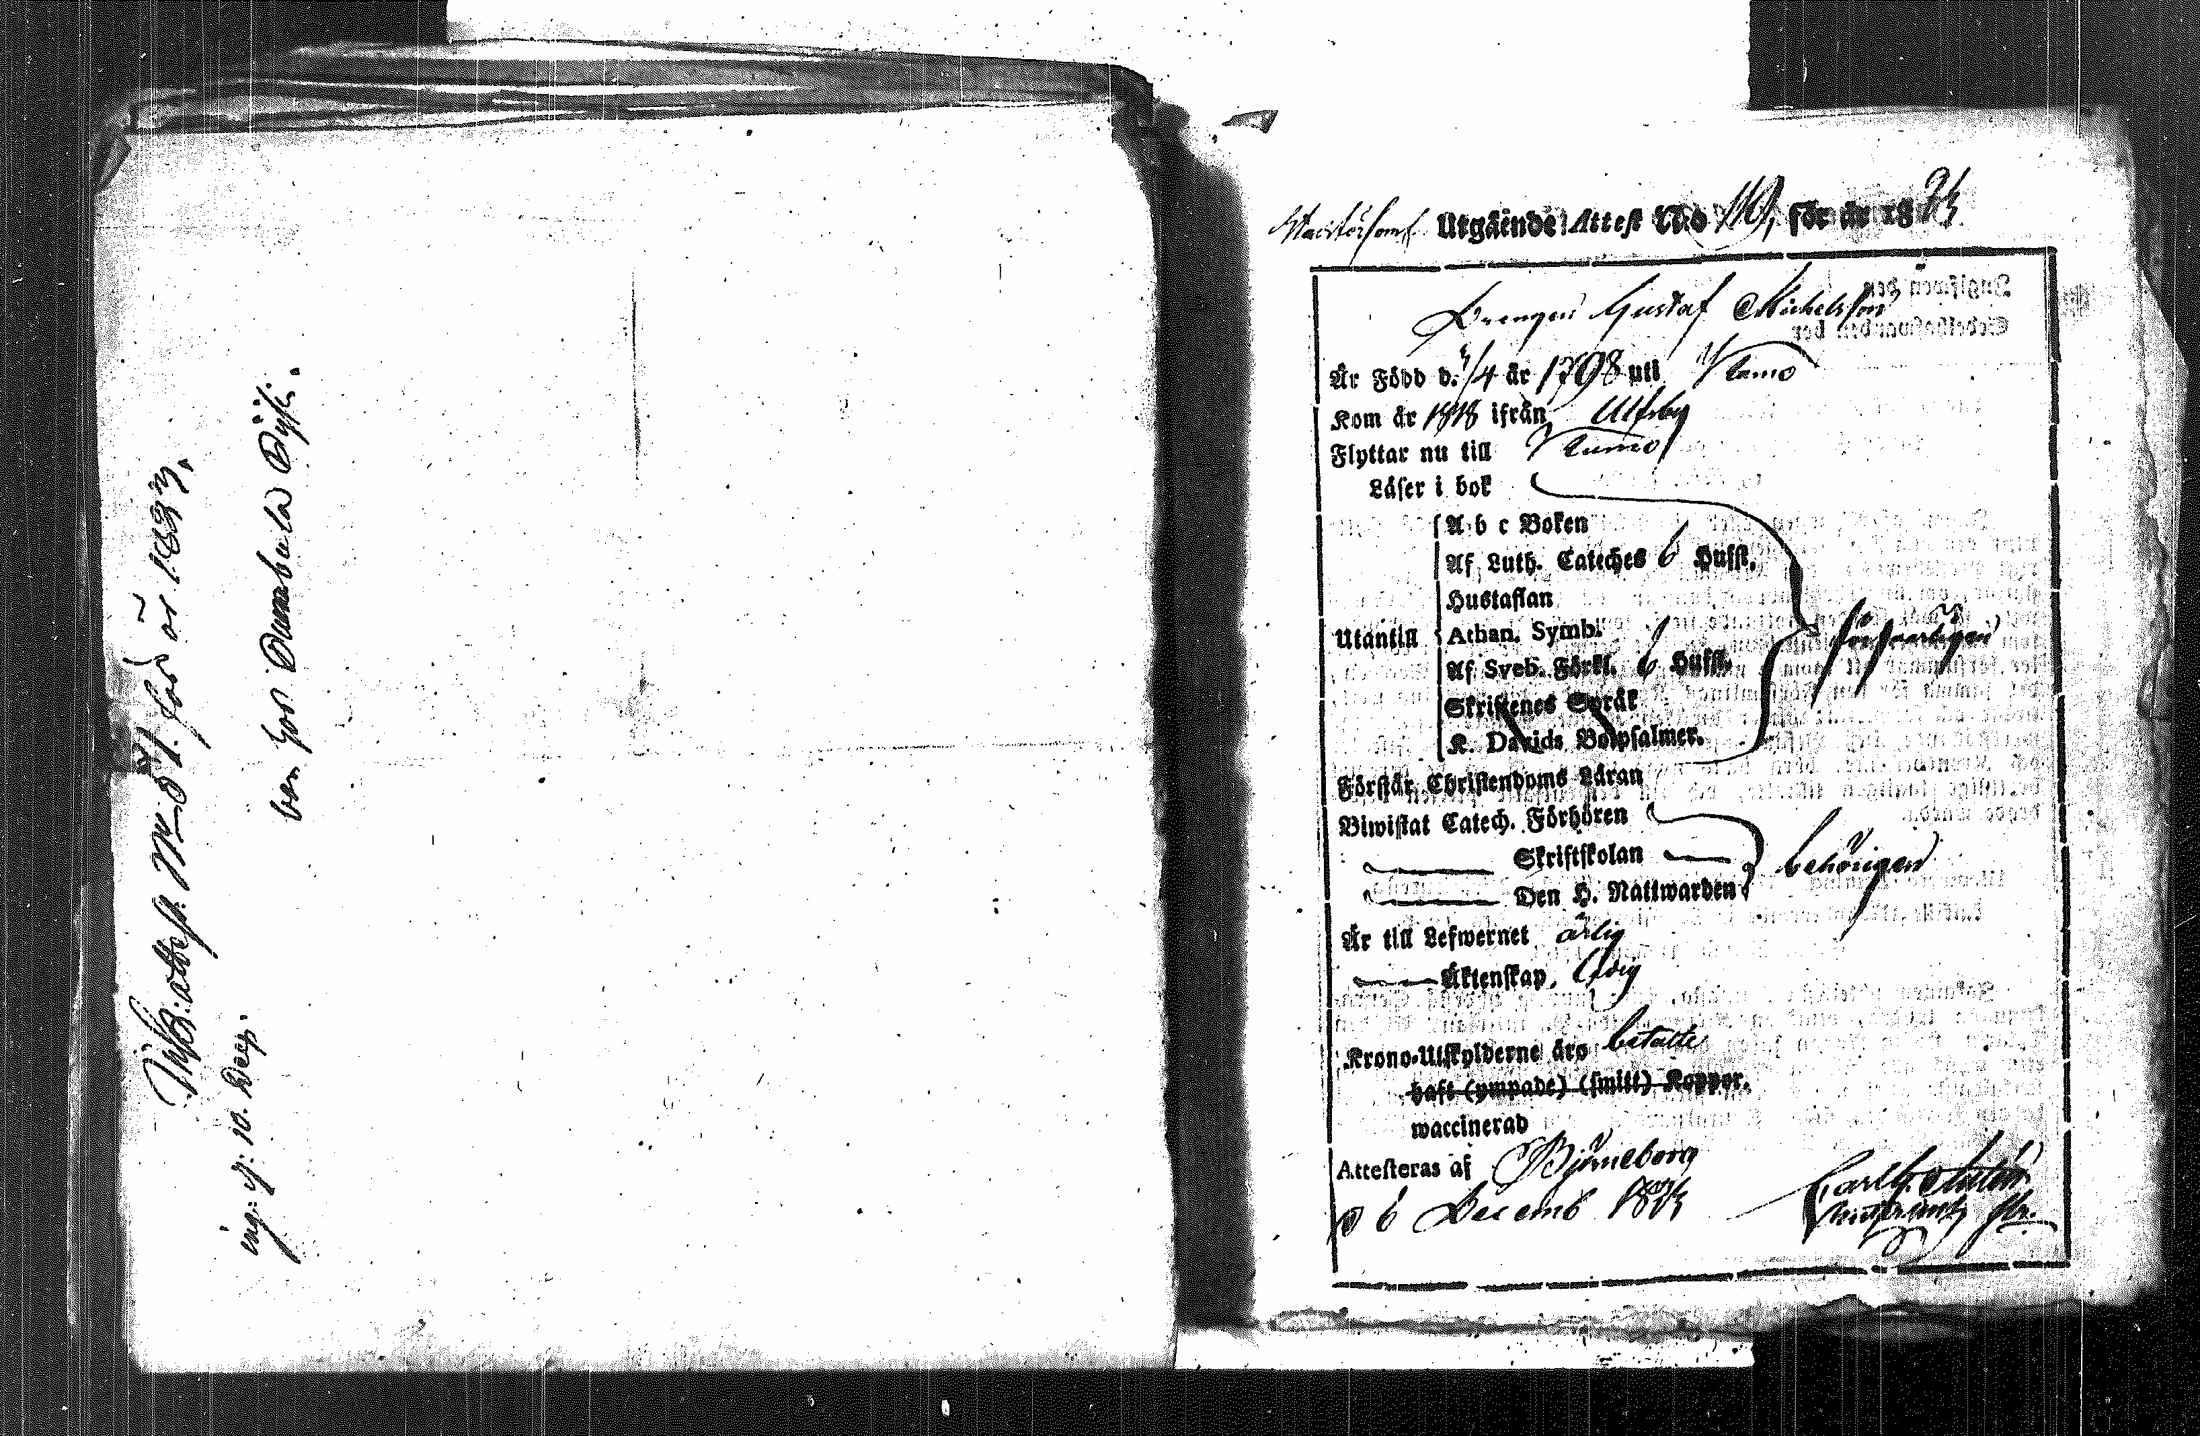 Ink: attest. No 51. för år 1823.
ing: d: 10. Dec:
ben hos
Utgående Attest No 110, för år 1823
Drengen Gustaf Michelsson
Är Född d. /4 år 1798 uti Kumo
Kom år 1818 ifrån Ulfsby
Flyttar nu till Kumo
Läser i bok
A b c Boken
Af Luth. Cateches 6 Hufst.
Hustaflan
Utantill Athan. Symb. försvarligen
Af Sveb. Förkl. 6 Hufst.
Skriftenes Språk
K. Davids Botpsalmer.
Förstår Christendoms Läran
Biwistat Catech. Förhören
Skriftskolan behörigen
Den H. Nattwarden
Är till Lefwernet ärlig
Äktenskap, ledig
Krono-Utskylderne äro betalte
haft (ympade) (smitt) Koppor.
waccinerad
Attesteras af Björneborg
d 6 Decemb 1823